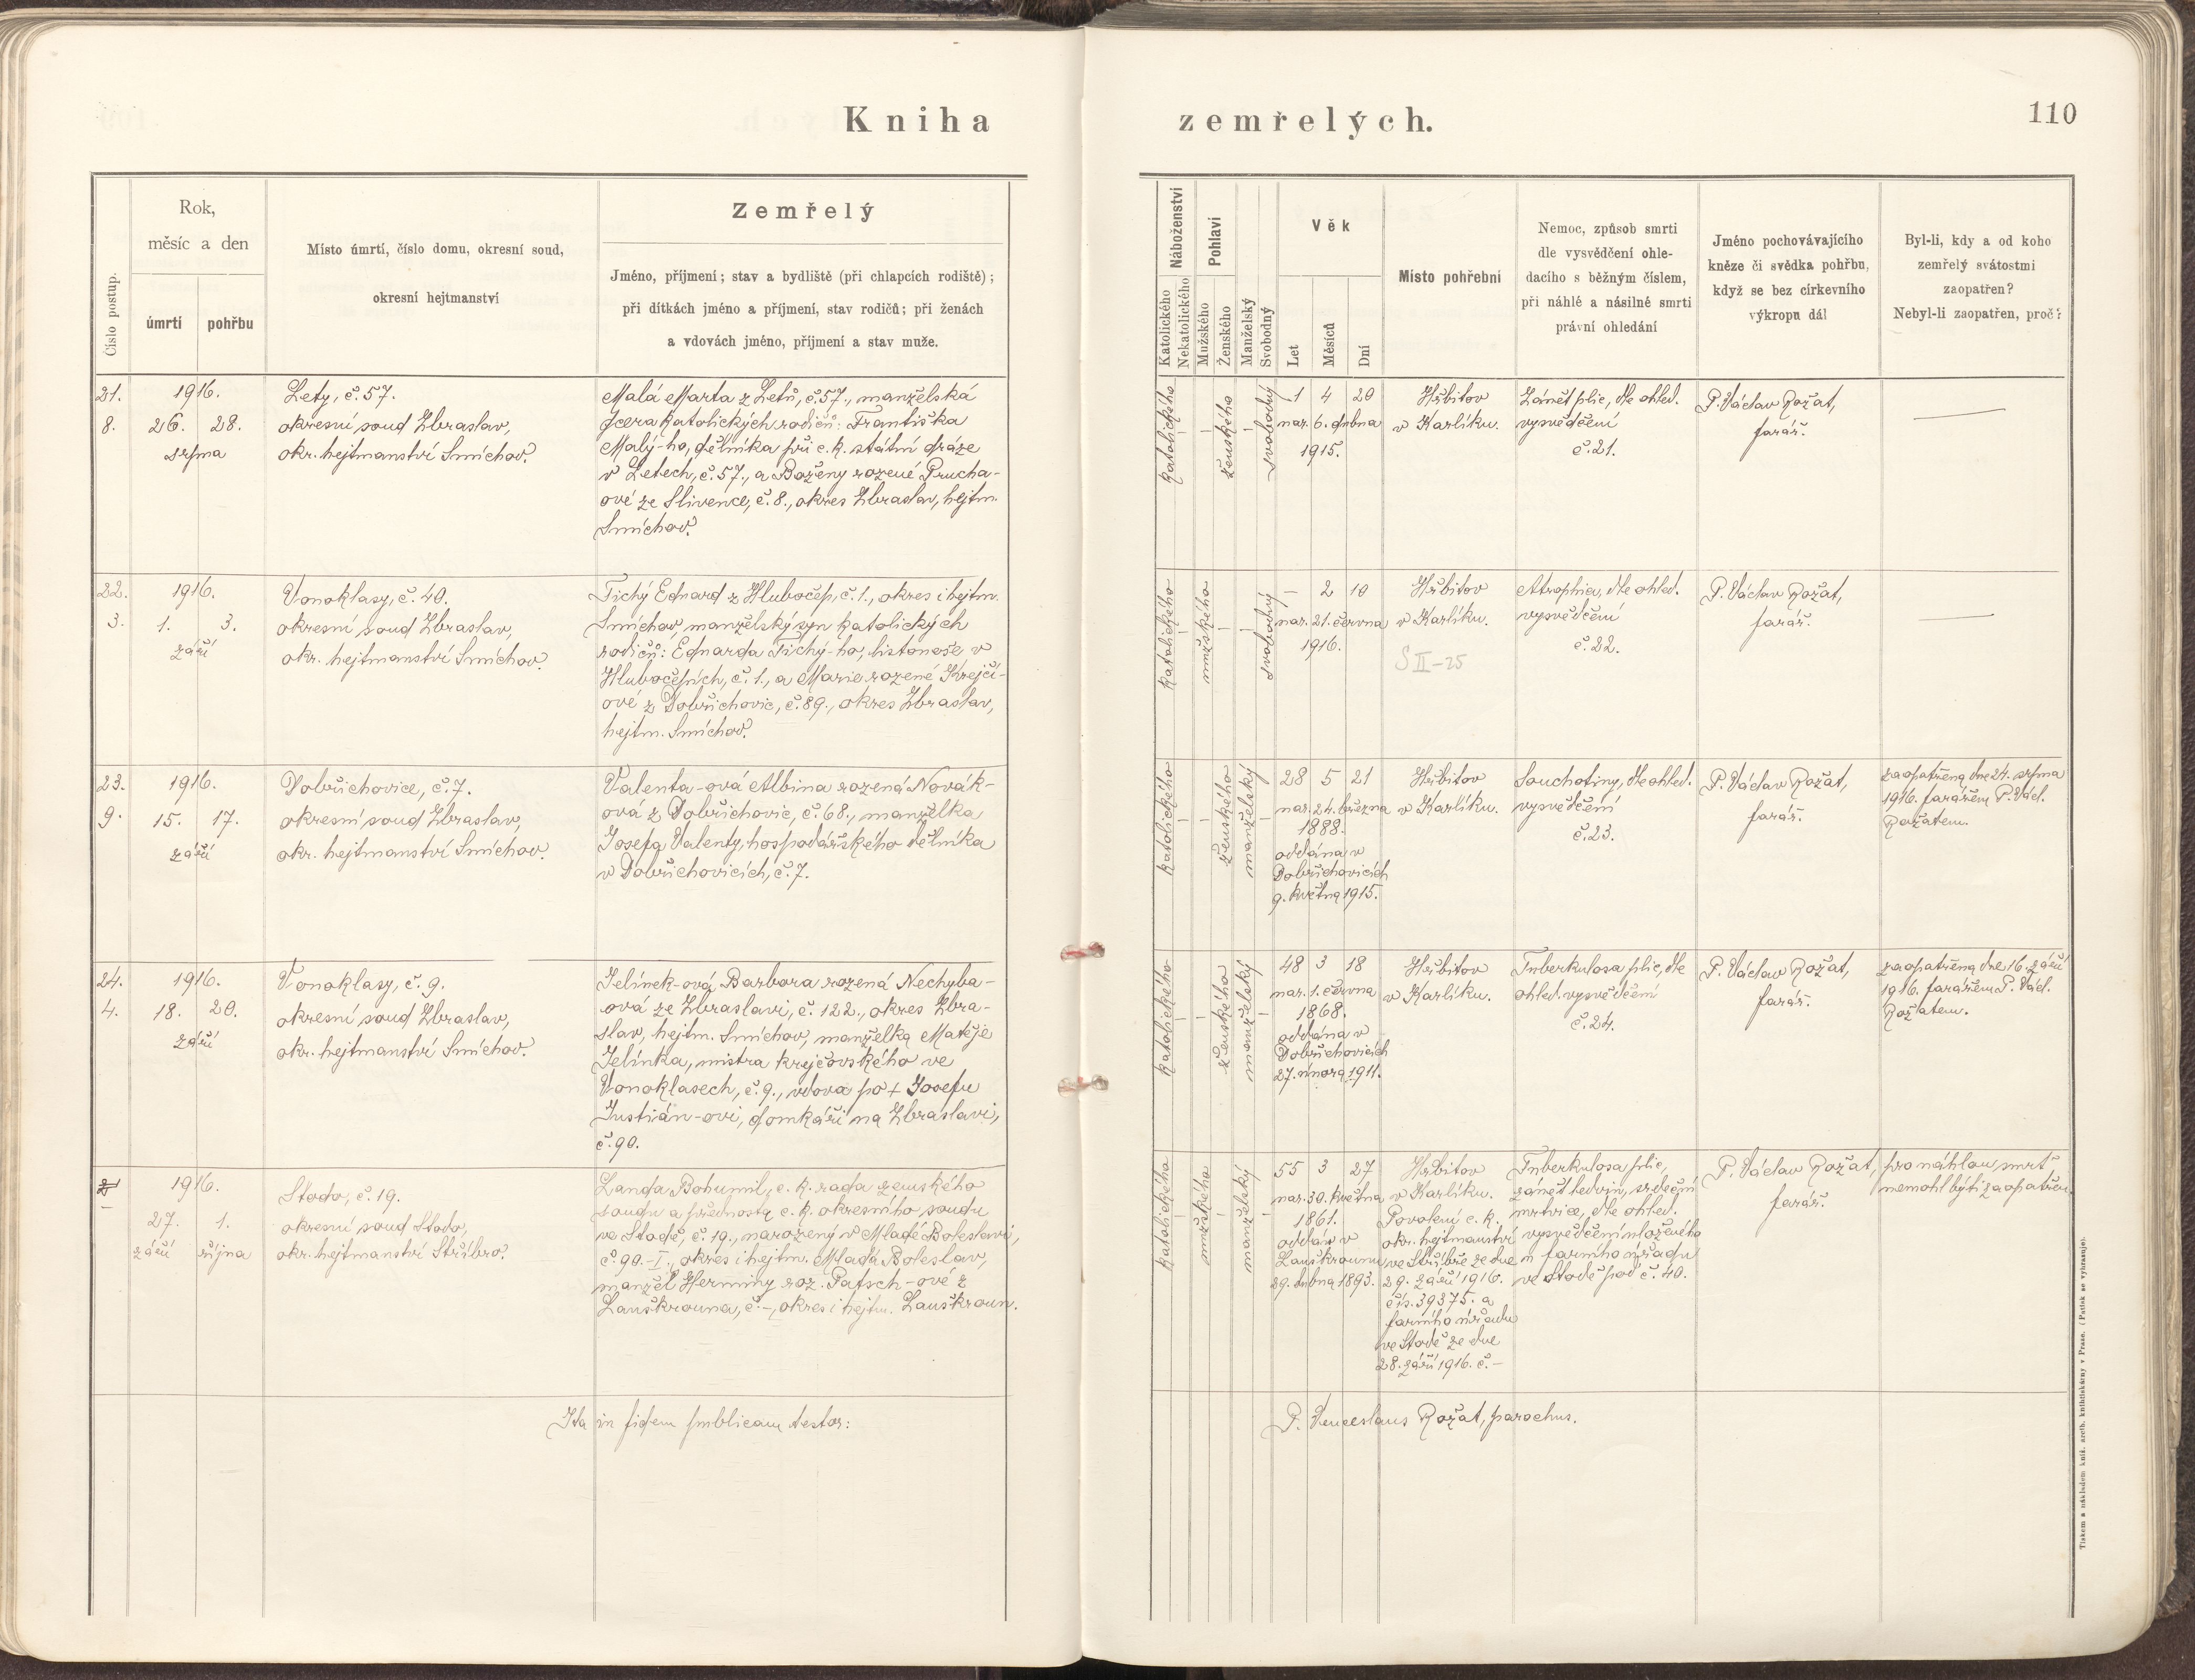 Kniha zemřelých.
110
Číslo postup.
Rok,
měsíc a den
úmrtí
pohřbu
Místo úmrtí, číslo domu, okresní soud,
okresní hejtmanství
Zemřelý
Jméno, příjmení; stav a bydliště (při chlapcích rodiště);
při dítkách jméno a příjmení, stav rodičů; při ženách
a vdovách jméno, příjmení a stav muže.
Náboženství
Katolického
Nekatolického
Pohlaví
Mužského
Ženského
Manželský
Svobodný
Věk
Let
Měsíců
Dní
Místo pohřební
Nemoc, způsob smrti
dle vysvědčení ohle-
dacího s běžným číslem,
při náhlé a násilné smrti
právní ohledání
Jméno pochovávajícího
kněze či svědka pohřbu,
když se bez církevního
výkropu dál
Byl-li, kdy a od koho
zemřelý svátostmi
zaopatřen?
Nebyl-li zaopatřen, proč?
21.
8.
1916.
26. 28.
srpna
Lety, č. 57.
okresní soud Zbraslav,
okr. hejtmanství Smíchov.
Malá Marta z Letů, č. 57., manželská
dcera katolických rodičů: Františka
Malý-ho, dělníka při c. k. státní dráze
v Letech, č. 57., a Boženy rozené Prucha-
ové ze Slivence, č. 8., okres Zbraslav, hejtm.
Smíchov.
katolického
ženského
svobodný
1 4 20
nar. 6. dubna
1915.
Hřbitov
v Karlíku.
Zánět plic, dle ohled.
vysvědčení
č. 21.
P. Václav Rožat,
farář.
22.
3.
1916.
1. 3.
září
Vonoklasy, č. 40.
okresní soud Zbraslav,
okr. hejtmanství Smíchov.
Tichý Eduard z Hlubočep, č. 1., okres i hejtm.
Smíchov, manželský syn katolických
rodičů: Eduarda Tichý-ho, listonoše v
Hlubočepích, č. 1., a Marie rozené Krejčí-
ové z Dobřichovic, č. 89., okres Zbraslav,
hejtm. Smíchov.
katolického
mužského
svobodný
— 2 10
nar. 21. června
1916.
Hřbitov
v Karlíku.
S II-25
Atrophia, dle ohled.
vysvědčení
č. 22.
P. Václav Rožat,
farář.
23.
9.
1916.
15. 17.
září
Dobřichovice, č. 7.
okresní soud Zbraslav,
okr. hejtmanství Smíchov.
Valenta-ová Albina rozená Novák-
ová z Dobřichovic, č. 68., manželka
Josefa Valenty, hospodářského dělníka
v Dobřichovicích, č. 7.
katolického
ženského
manželský
28 5 21
nar. 24. března
1888.
oddána v
Dobřichovicích
9. května 1915.
Hřbitov
v Karlíku.
Souchotiny, dle ohled.
vysvědčení
č. 23.
P. Václav Rožat,
farář.
zaopatřena dne 24. srpna
1916. farářem P. Václ.
Rožatem.
24.
4.
1916.
18. 20.
září
Vonoklasy, č. 9.
okresní soud Zbraslav,
okr. hejtmanství Smíchov.
Jelínek-ová Barbora rozená Nechyba-
ová ze Zbraslavi, č. 122., okres Zbra-
slav, hejtm. Smíchov, manželka Matěje
Jelínka, mistra krejčovského ve
Vonoklasech, č. 9., vdova po + Josefu
Justián-ovi, domkáři na Zbraslavi,
č. 90.
katolického
ženského
manželský
48 3 18
nar. 1. června
1868.
oddána v
Dobřichovicích
27. února 1911.
Hřbitov
v Karlíku.
Tuberkulosa plic, dle
ohled. vysvědčení
č. 24.
P. Václav Rožat,
farář.
zaopatřena dne 16. září
1916. farářem P. Václ.
Rožatem.
1916.
27. 1.
září října
Stodo, č. 19.
okresní soud Stodo,
okr. hejtmanství Stříbro.
Landa Bohumil, c. k. rada zemského
soudu a přednosta c. k. okresního soudu
ve Stodě, č. 19., narozený v Mladé Boleslavi,
č. 90.-I., okres i hejtm. Mladá Boleslav,
manžel Herminy roz. Patsch-ové z
Lanškrouna, č. -, okres i hejtm. Lanškroun.
katolického
mužského
manželský
55 3 27
nar. 30. května
1861.
oddán v
Lanškrounu
29. dubna 1893.
Hřbitov
v Karlíku.
Povolení c. k.
okr. hejtmanství
ve Stříbře ze dne
29. září 1916.
čís. 39375. a
farního úřadu
ve Stodě ze dne
28. září 1916. č. -
Tuberkulosa plic,
zánět ledvin, srdeční
mrtvice, dle ohled.
vysvědčení uloženého
u farního úřadu
ve Stodě pod č. 40.
P. Václav Rožat,
farář.
pro náhlou smrt
nemohl býti zaopatřen.
Ita in fidem publicam testor:
P. Venceslaus Rožat, parochus.
Tiskem a nákladem kníž. arcib. knihtiskárny v Praze. (Patisk se vyhrazuje).